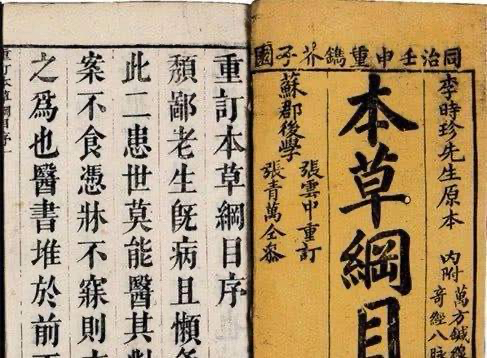 同治壬申重鐫芥子園
李時珍先生原本
內附
萬方鍼線
奇經八脉
本草綱目
蘇郡後學
張雲中重訂
張青萬仝參
重訂本草綱目序
頹鄙老生旣病且懶
此二患世莫能醫其對
案不食憑牀不寐則
之爲也醫書堆於前
重訂本草綱目序一